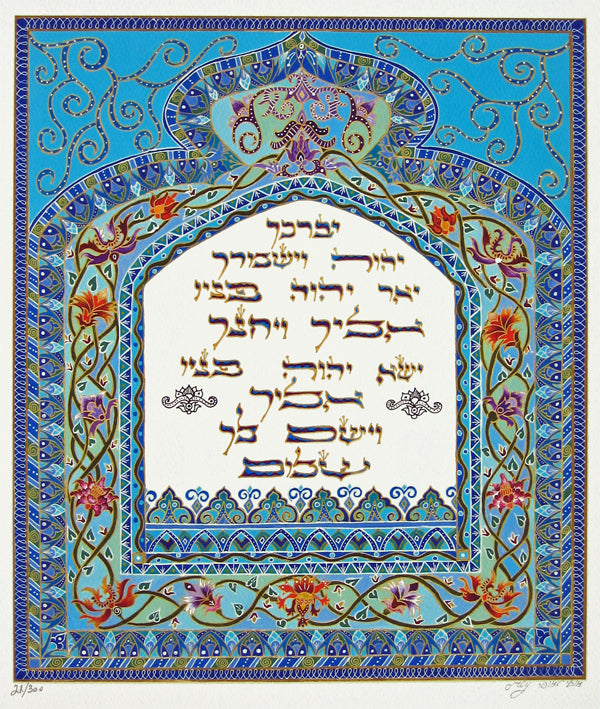 יברכך
יהוה וישמרך
יאר יהוה פניו
אליך ויחנך
ישא יהוה פניו
אליך
וישם לך
שלום
21/300